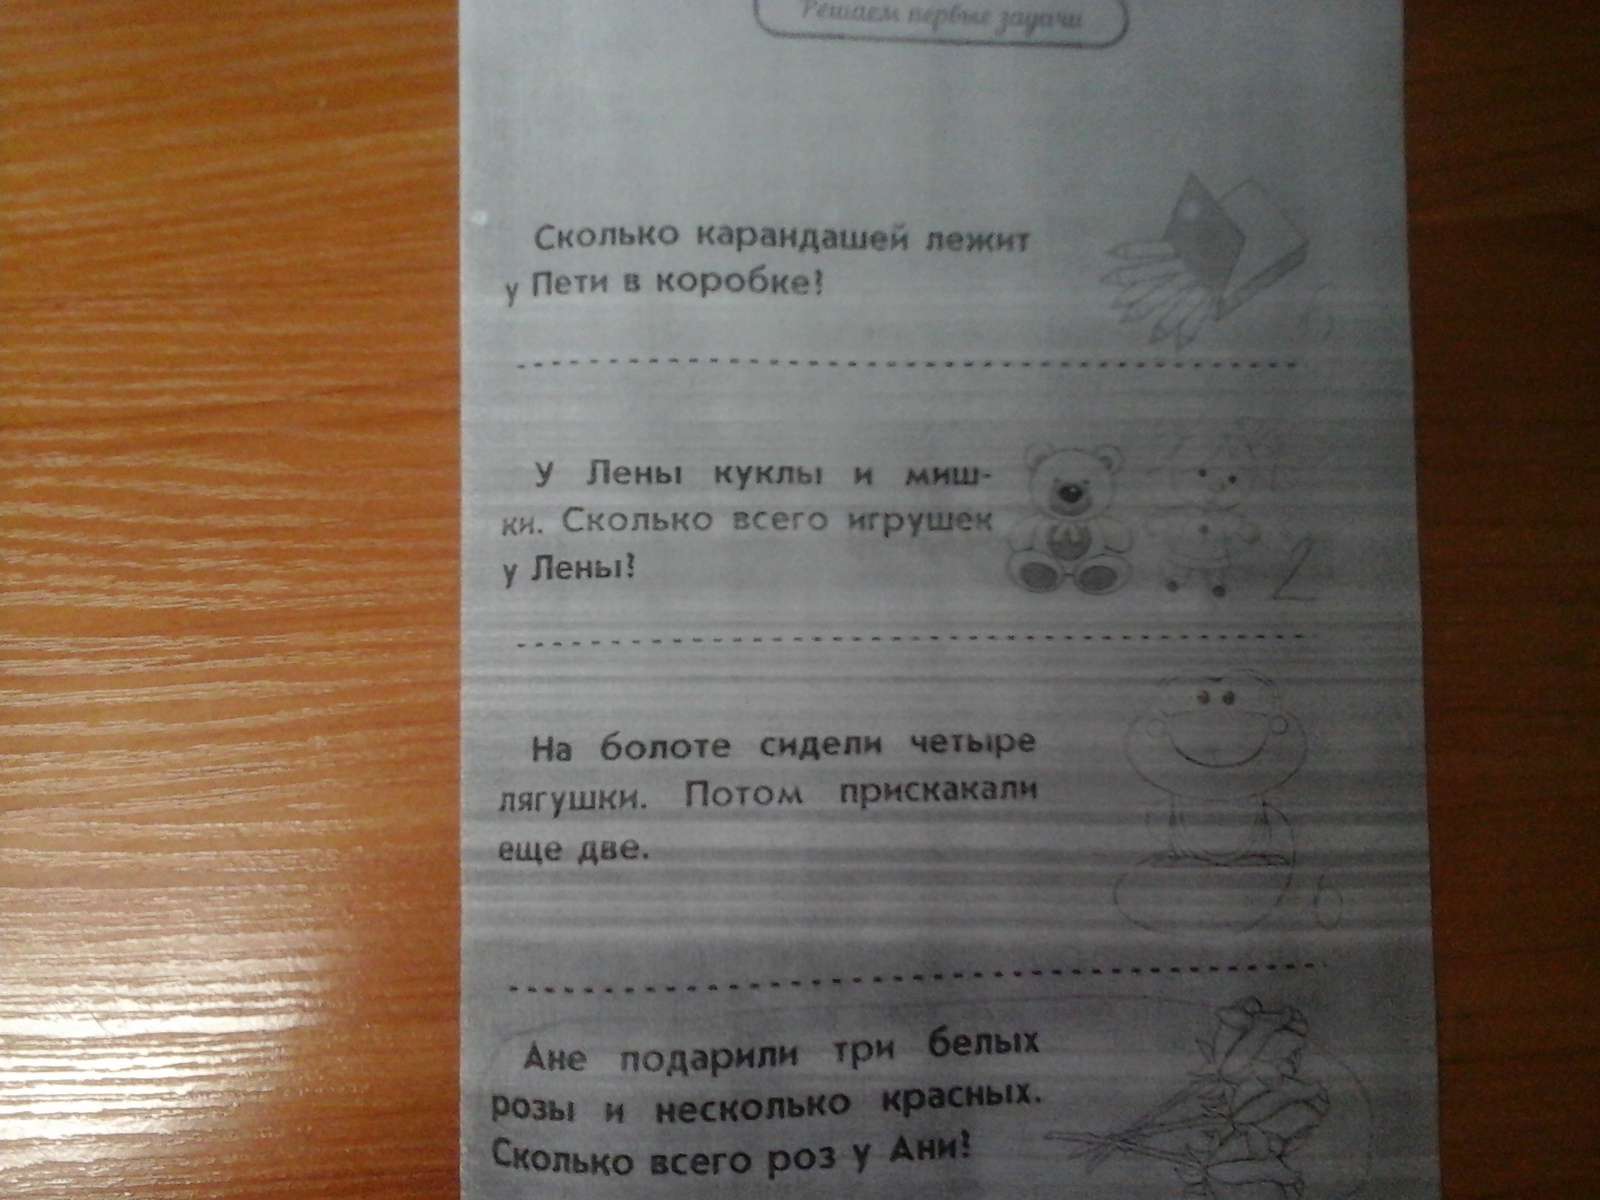 Решаем первые задачи
Сколько карандашей лежит
у Пети в коробке?
У Лены куклы и миш-
ки. Сколько всего игрушек
у Лены?
2
На болоте сидели четыре
лягушки. Потом прискакали
еще две.
6
Ане подарили три белых
розы и несколько красных.
Сколько всего роз у Ани?